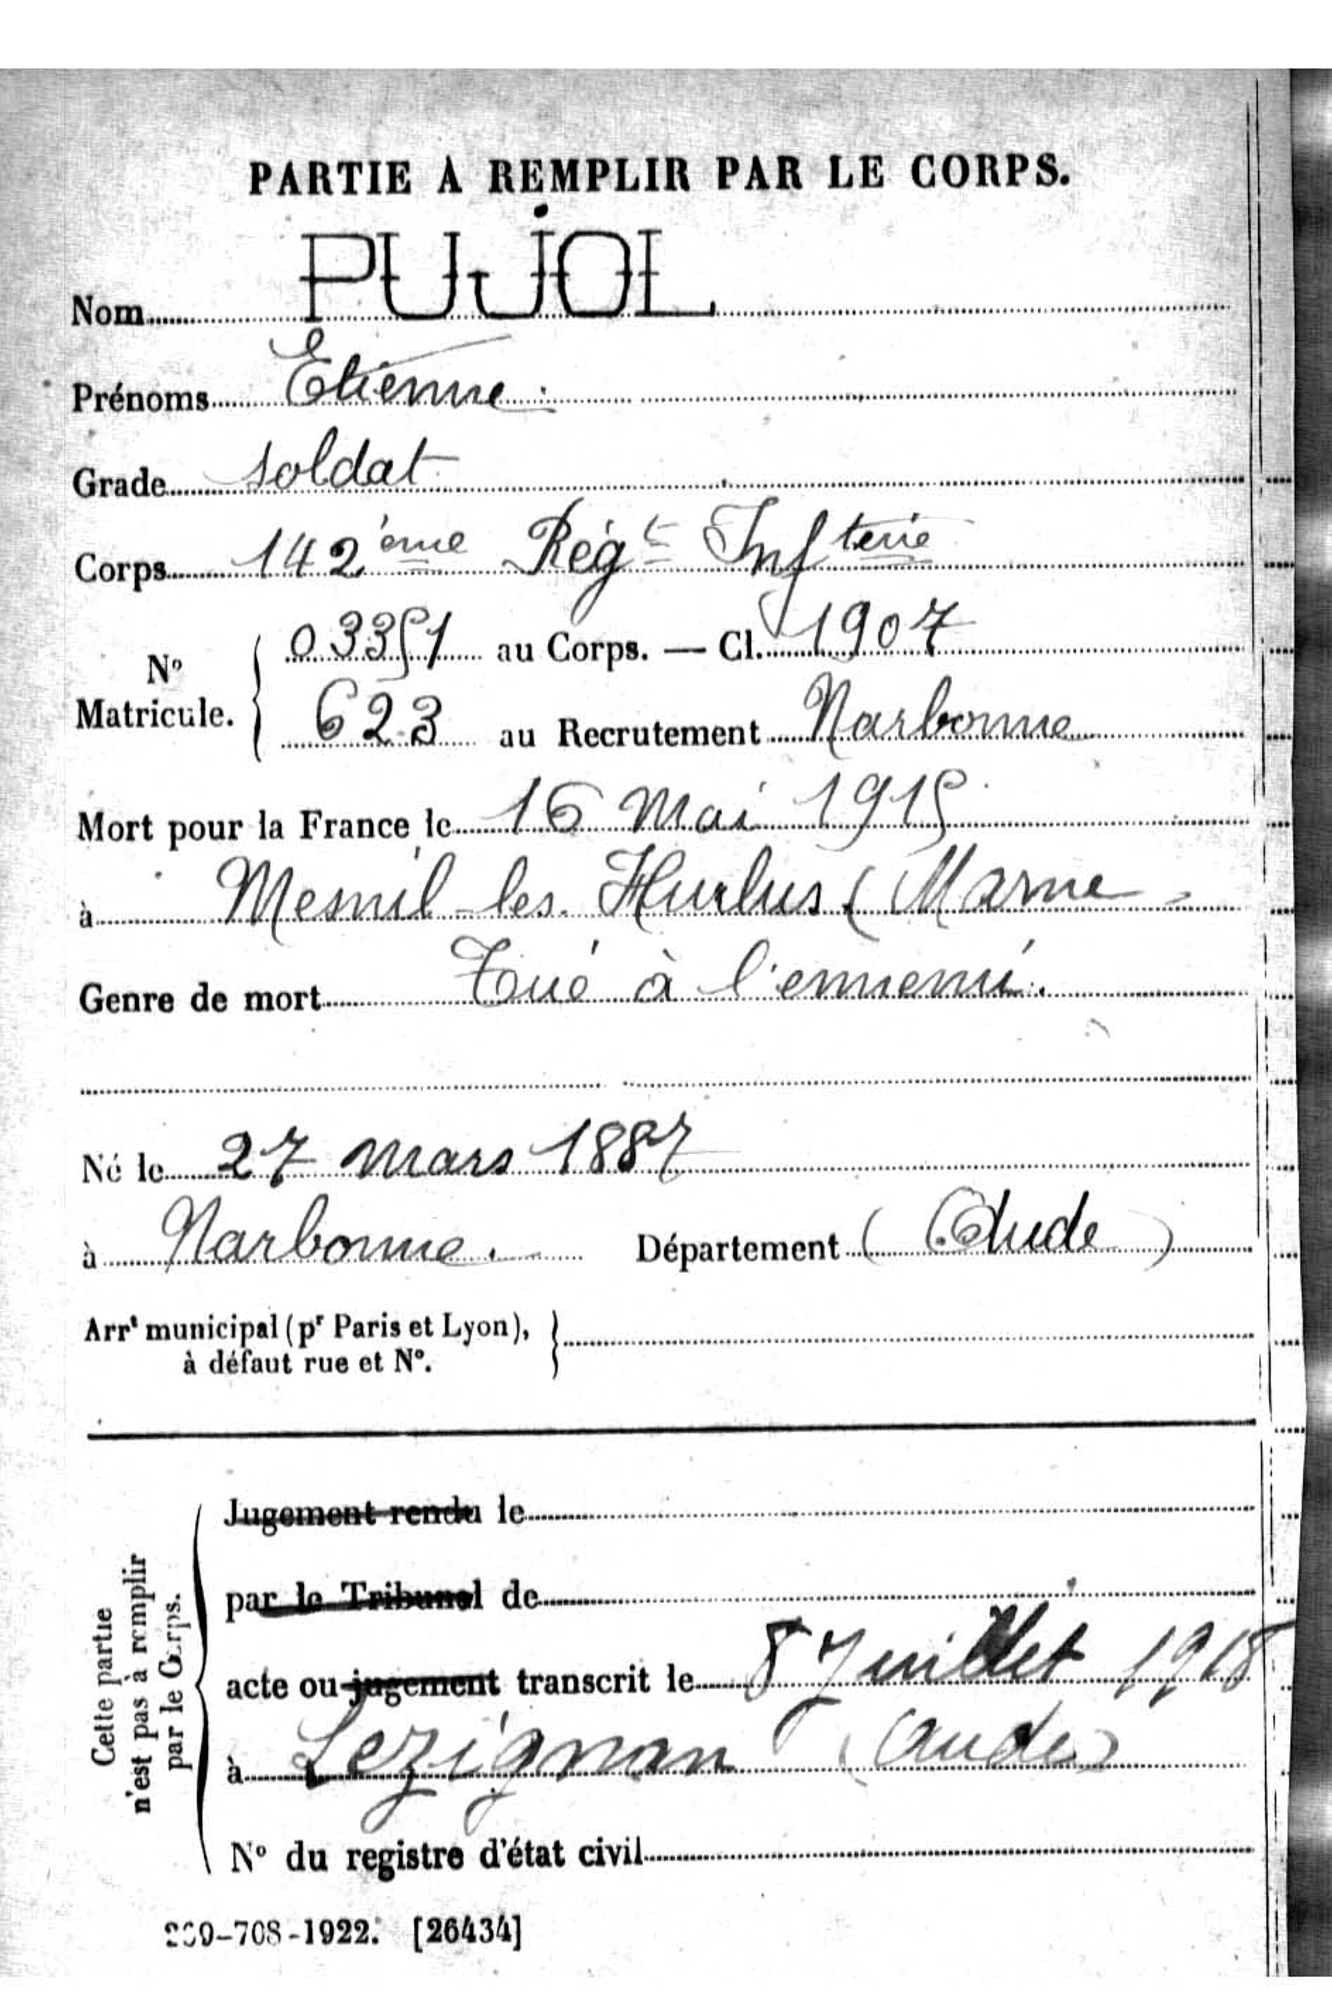 PARTIE A REMPLIR PAR LE CORPS.
Nom PUJOL
Prénoms Etienne
Grade soldat
Corps 142ème Régt Infterie
No Matricule. { 03351 au Corps. — Cl. 1907
623 au Recrutement Narbonne
Mort pour la France le 16 Mai 1915
à Mesnil-les-Hurlus (Marne
Genre de mort Tué à l'ennemi.
Né le 27 mars 1887
à Narbonne. Département (Aude)
Arrt municipal (pr Paris et Lyon), }
à défaut rue et No.
Cette partie n'est pas à remplir par le Corps.
Jugement rendu le
par le Tribunal de
acte ou jugement transcrit le 8 Juillet
à Lezignan (Aude)
No du registre d'état civil
-708-1922. [26434]